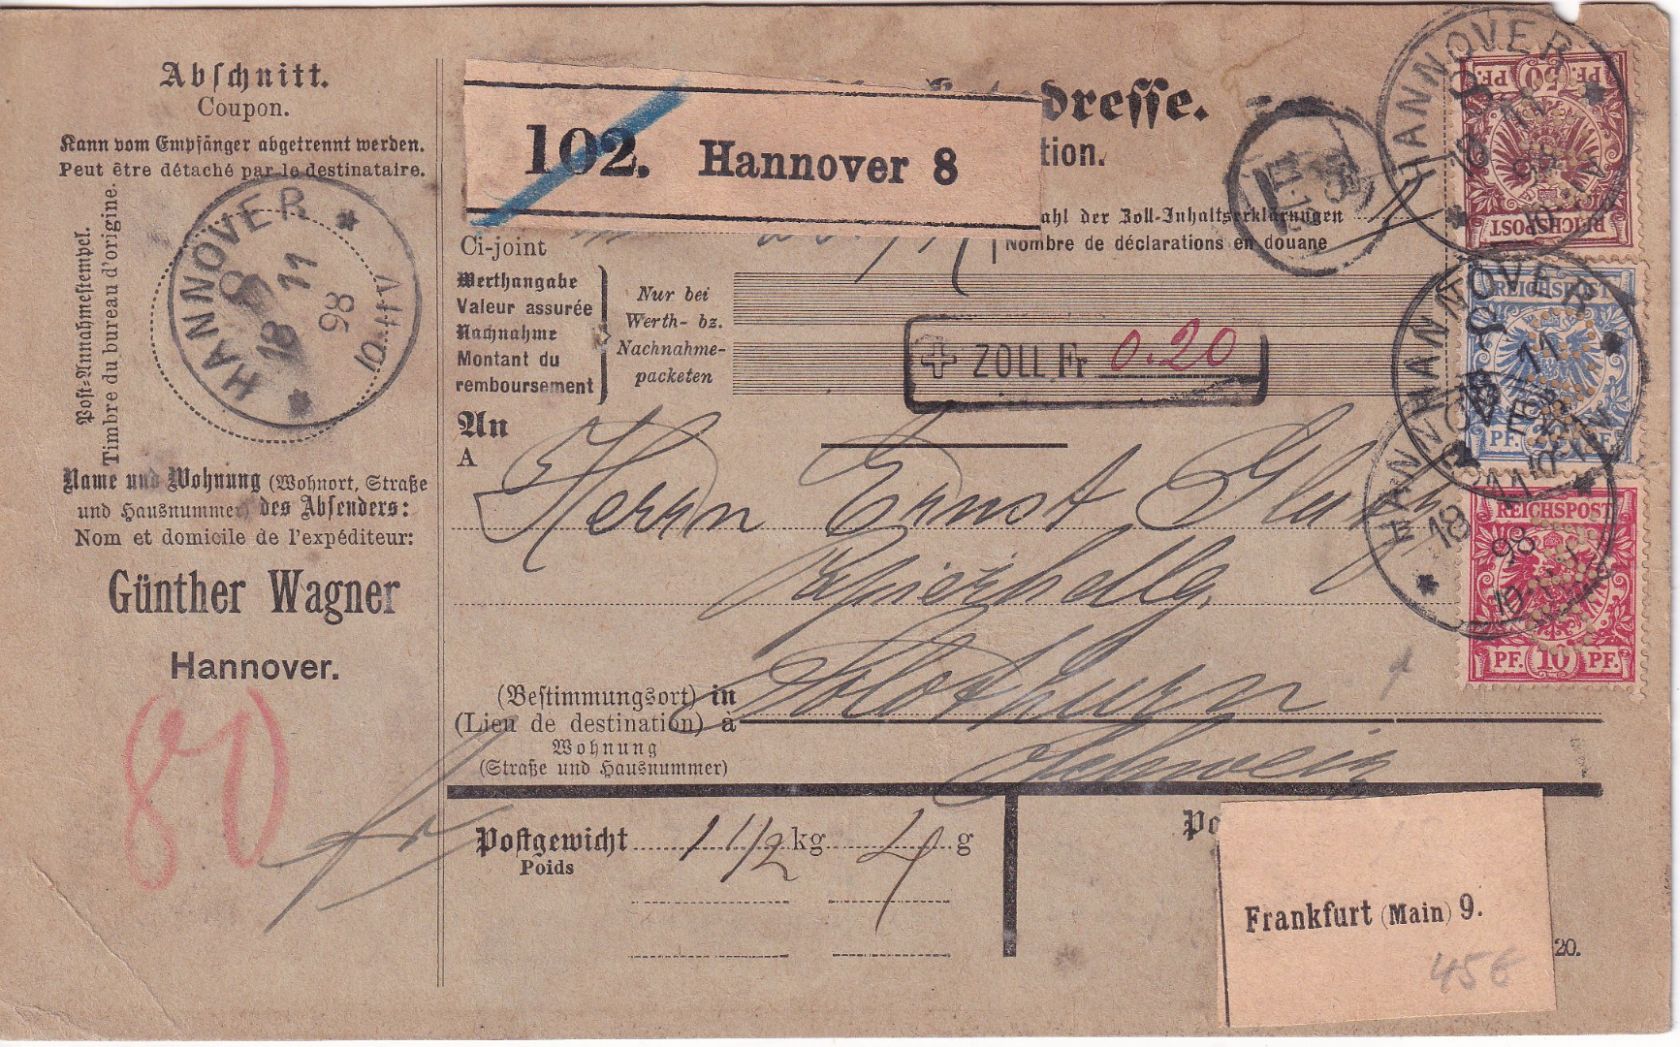 Abschnitt.
Coupon.
Kann vom Empfänger abgetrennt werden.
Peut être détaché par le destinataire.
Post-Annahmestempel.
Timbre du bureau d'origine.
HANNOVER
8
18 11
98
10-11V
Name und Wohnung (Wohnort, Straße
und Hausnummer) des Absenders:
Nom et domicile de l'expéditeur:
Günther Wagner
Hannover.
80
dresse.
tion.
102. Hannover 8
Ci-joint
ahl der Zoll-Inhaltserklärungen
Nombre de déclarations en douane
Werthangabe
Valeur assurée
Nachnahme
Montant du
remboursement
Nur bei
Werth- bz.
Nachnahme-
packeten
ZOLL Fr 0.20
An
A
Herrn Ernst
Papierhdlg.
(Bestimmungsort) in
(Lieu de destination) à
Solothurn
Wohnung
(Straße und Hausnummer)
Schweiz
Postgewicht 1 1/2 kg g
Poids
Po
Frankfurt (Main) 9.
45€
20.
PF. 50 PF.
REICHSPOST
HANNOVER
8
18 11
98
REICHSPOST
PF. PF.
HANNOVER
8
11
REICHSPOST
PF. 10 PF.
HANNOVER
18 11
98